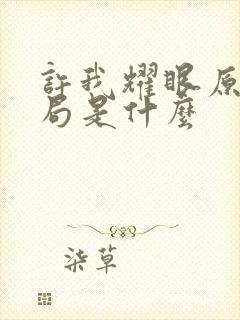 許我耀眼原
局是什麼
柒草